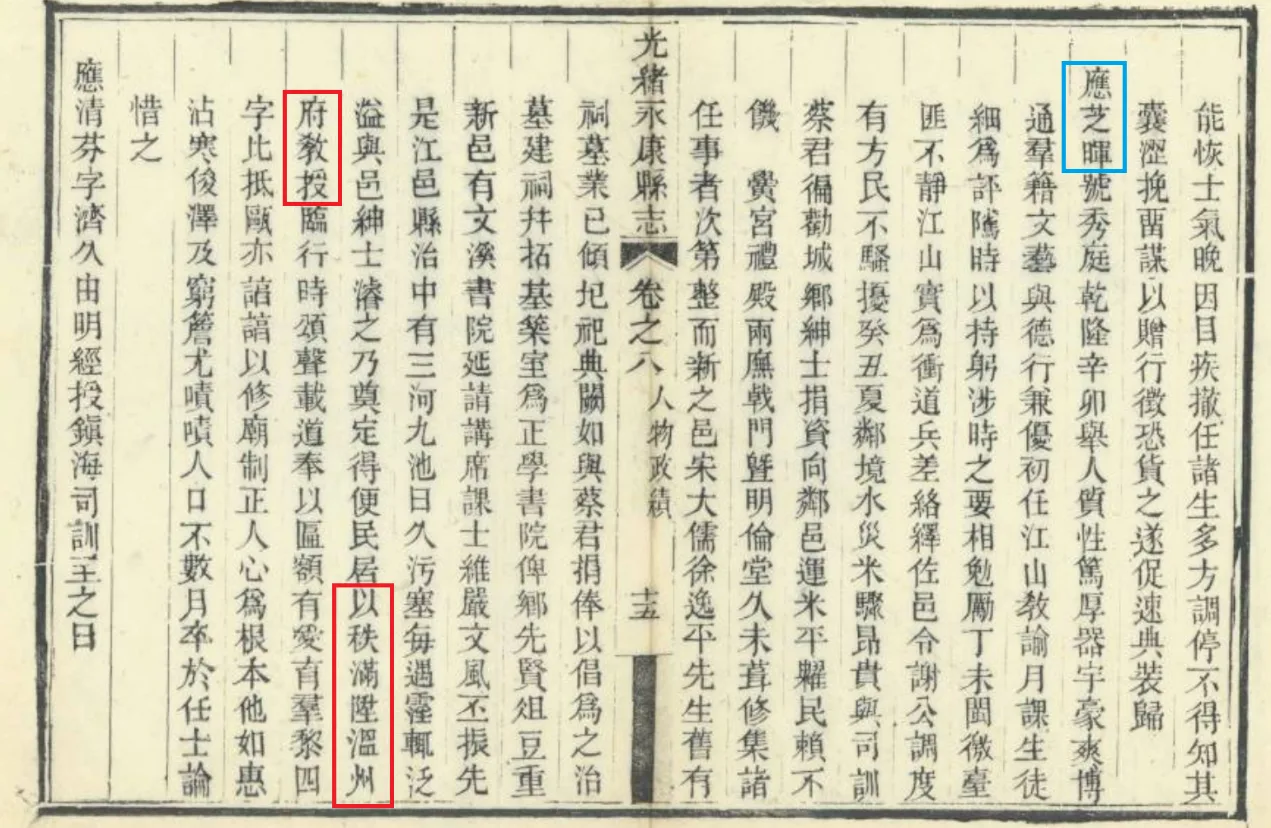 能恢士氣晚因目疾撤任諸生多方調停不得知其
囊澀挽畱謀以贈行徴恐貨之遂促速典装歸
應芝暉號秀庭乾隆辛卯舉人質性篤厚器宇豪爽博
通羣籍文藝與德行兼優初任江山教諭月課生徒
細爲評隲時以持躬涉時之要相勉勵丁未閩徼臺
匪不靜江山實爲衝道兵差絡繹佐邑令謝公調度
有方民不騷擾癸丑夏鄰境水災米驟昂貴與司訓
蔡君徧勸城鄉紳士捐資向鄰邑運米平糶民賴不
饑 黌宮禮殿兩廡戟門曁明倫堂久未葺修集諸
任事者次第整而新之邑宋大儒徐逸平先生舊有
光緒永康縣志 卷之八 人物政績 十五
祠墓業已傾圮祀典闕如與蔡君捐俸以倡爲之治
墓建祠幷拓基築室爲正學書院俾鄉先賢俎豆重
新邑有文溪書院延請講席課士維嚴文風丕振先
是江邑縣治中有三河九池日久污塞每遇霪輒泛
溢與邑紳士濬之乃奠定得便民居以秩滿陞溫州
府教授臨行時頌聲載道奉以匾額有愛育羣黎四
字比抵甌亦諳諳以修廟制正人心爲根本他如惠
沾寒俊澤及窮簷尤嘖嘖人口不數月卒於任士論
惜之
應清芬字濟久由明經授鎭海司訓至之日